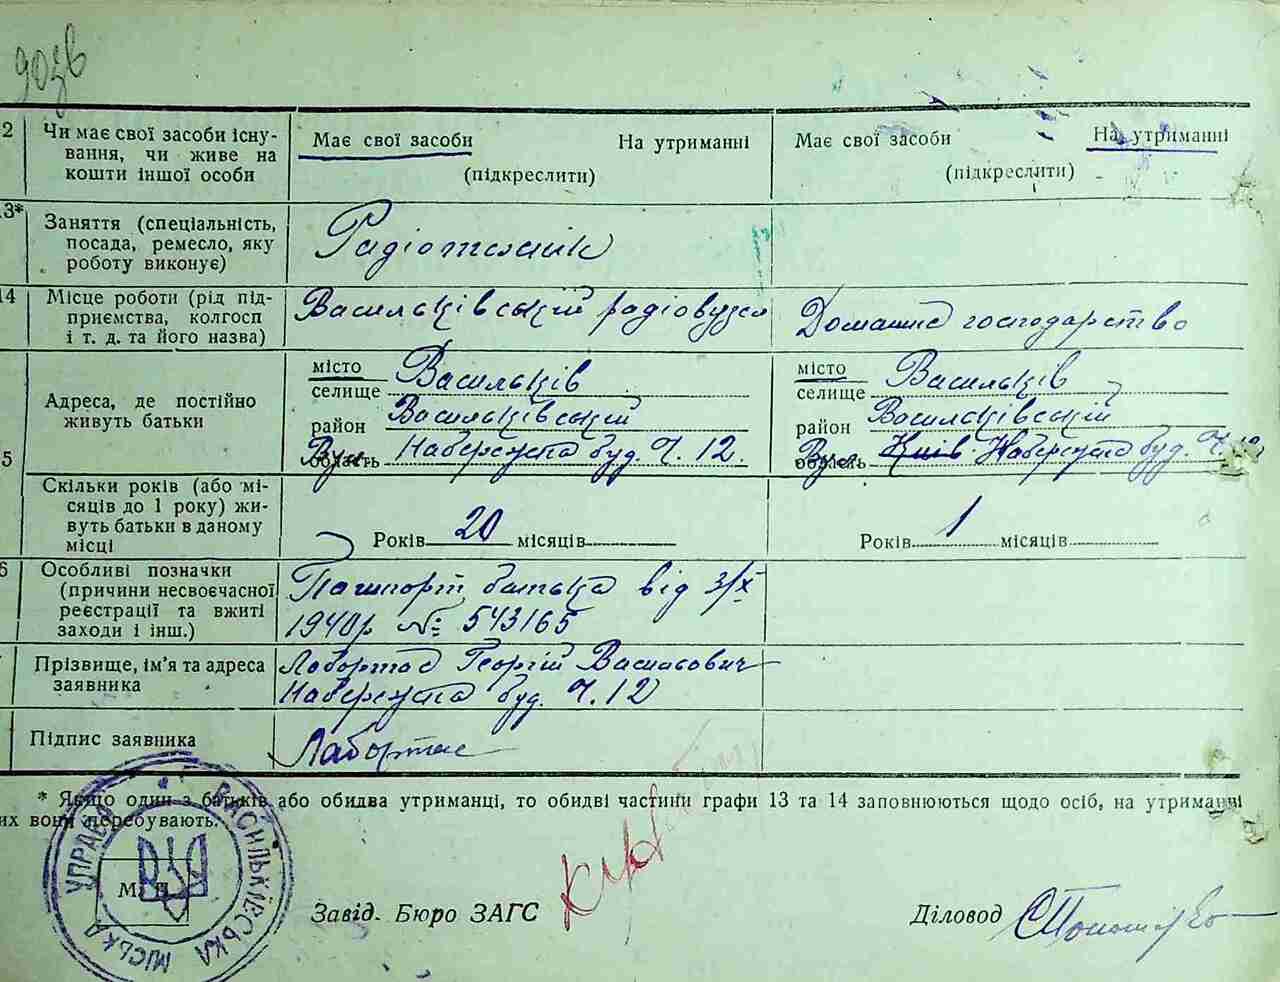 2 Чи має свої засоби існу-
вання, чи живе на
кошти іншої особи
Має свої засоби На утриманні
(підкреслити)
Має свої засоби На утриманні
(підкреслити)
13* Заняття (спеціальність,
посада, ремесло, яку
роботу виконує)
Радіотехнік
14 Місце роботи (рід під-
приємства, колгосп
і т. д. та його назва)
Васильківський радіовузел
Домашнє господарство
5 Адреса, де постійно
живуть батьки
місто
селище Васильків
район Васильківський
область Вул. Набережна буд. Ч. 12.
місто
селище Васильків
район Васильківський
область Вул. Київ. Набережна буд. Ч.
Скільки років (або мі-
сяців до 1 року) жи-
вуть батьки в даному
місці
Років 20 місяців
Років 1 місяців
6 Особливі позначки
(причини несвоєчасної
реєстрації та вжиті
заходи і інш.)
Пашпорт батька від 3/X
1940р № 543165
Прізвище, ім'я та адреса
заявника
Георгій Васильович
Набережна буд. Ч. 12
Підпис заявника
* Якщо один з батьків або обидва утриманці, то обидві частини графи 13 та 14 заповнюються щодо осіб, на утриманні
их вони перебувають.
ВАСИЛЬКІВСЬКА МІСЬКА УПРАВА
М. П.
Завід. Бюро ЗАГС
Діловод